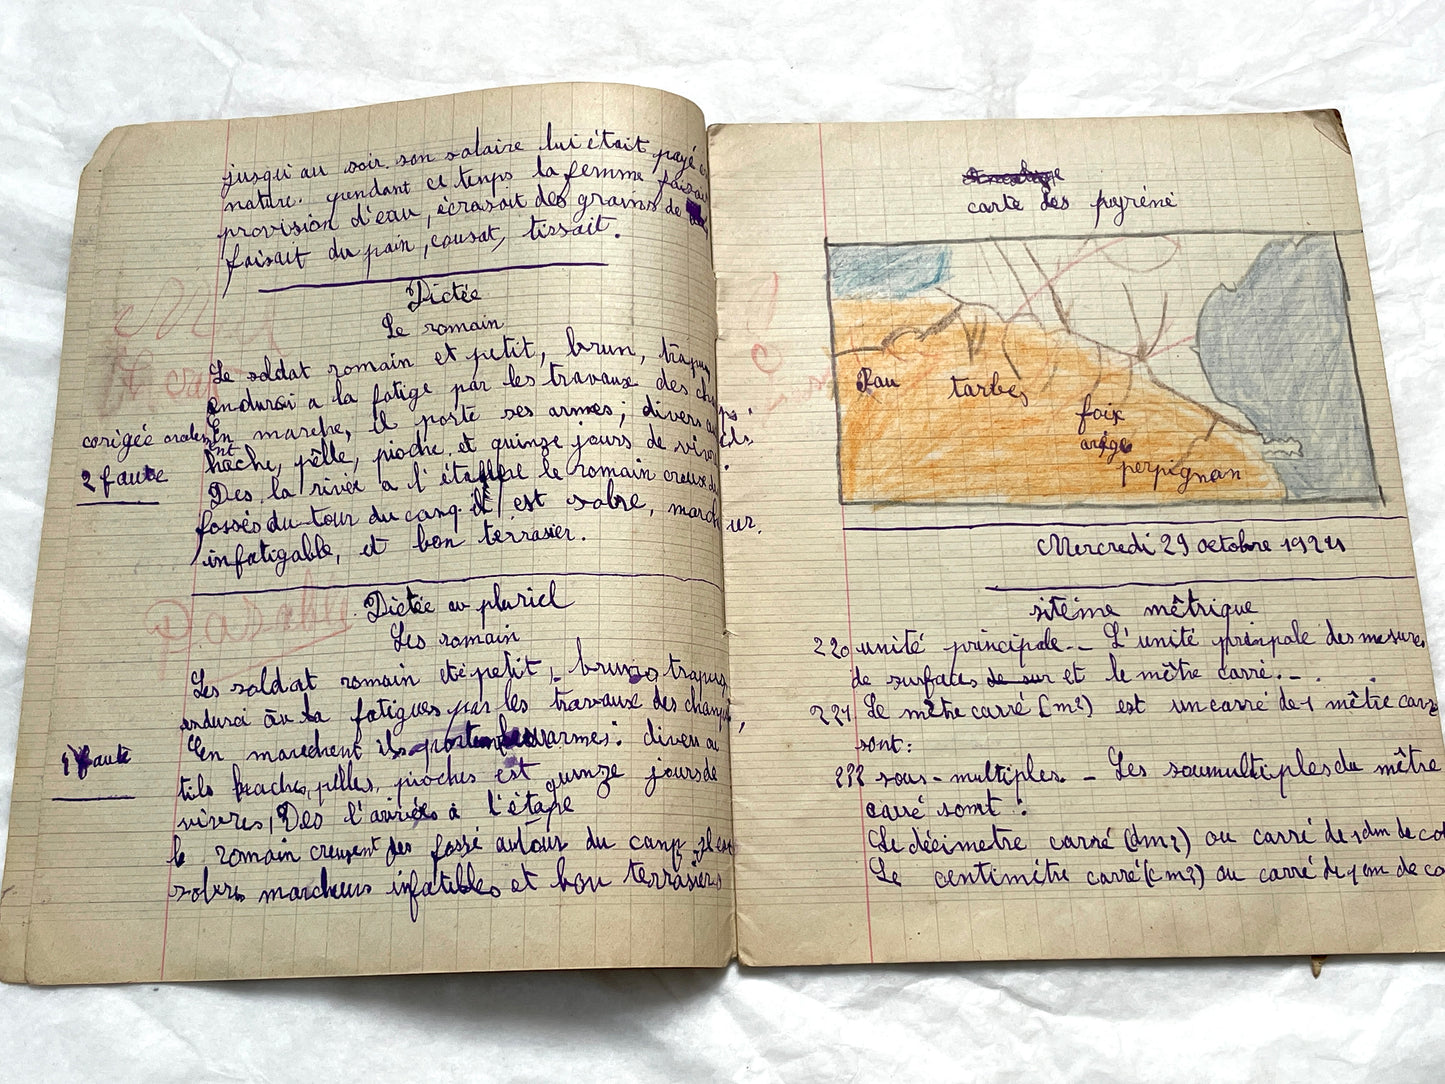 jusqu'au soir son salaire lui était payé
nature. pendant ce temps la femme faisait
provision d'eau, écrasait des grains de
faisait du pain, cousat, tissait.
Dictée
Le romain
Le soldat romain et petit, brun, trapu
endurci a la fatige par les travaux des champs.
En marche, il porte ses armes; divers outils.
hache, pêlle, pioche et quinze jours de vivres.
Des la rivée a l'étape le romain creuse des
fossés du tour du camp. il est sobre, marcheur.
infatigable, et bon terrasier.
corigée oralement
2 faute
Dictée au pluriel
Les romain
Les soldat romain été petit, bruns trapus
endurci à la fatigues par les travaux des champs,
En marchent ils portent armes: divers ou
tils haches, pêlles, pioches est quinze jours de
vivres, Des l'arivées à l'étape
le romain creusent des fossé autour du camp il est
sobres marcheurs infatibles et bon terrasiers
1 faute
Passable
carte des pyréné
Pau
tarbes
foix
ariége
perpignan
Mercredi 29 octobre 1924
sitéime mêtrique
220 unité principale. - L'unité prinpale des mesures
de surfaces de sur et le mêtre carré. -
221 Le mêtre carré (m2) est un carré de 1 mêtre carré
sont:
222 sous-multiples. - Les soumultiples du mêtre
carré somt :
Le décimetre carré (dm2) ou carré de 1dm de cot
Le centimétre carré (cm2) ou carré de 1 cm de co